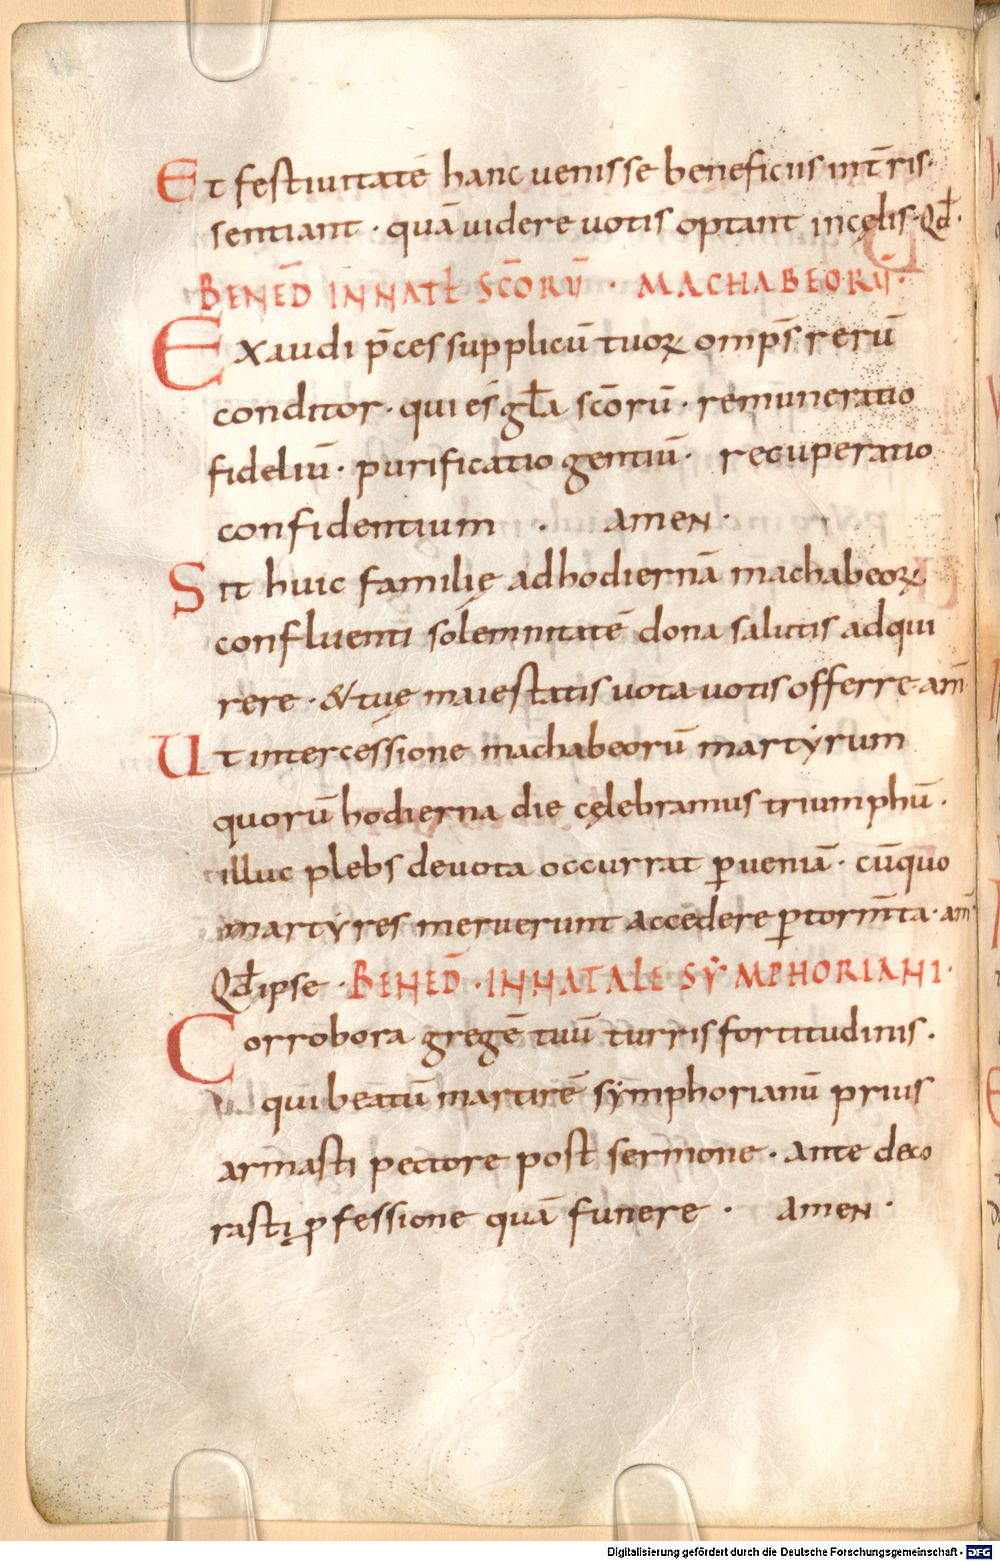 Et festiuitatē hanc uenisse beneficiis int̄ris·
sentiant · quā uidere uotis optant incęlis· Qđ·
BENED̄ INNATƚ SC̄ORŪ · MACHABEORŪ·
Exaudi p̄ces supplicū tuoꝝ omp̄s rerū
conditor· qui es gƚa sc̄orū · remuneratio
fideliū· purificatio gentiū· recuperatio
confidentium · amen·
Sit huic familię adhodiernā machabeoꝝ
confluenti solemnitatē dona salutis adqui
rere · & tuę maiestatis uota uotis offerre· am̄
Ut intercessione machabeorū martyrum
quorū hodierna die cęlebramus triumphū·
illuc plebs deuota occurrat ꝑ ueniā· cūquo
martyres meruerunt accedere ꝑ torm̄ta· am̄
Qđ ipse · BENED̄ · INNATALE SYMPHORIANI·
Corrobora gregē tuū turris fortitudinis ·
qui beatū martirē symphorianū prius
armasti pectore post sermone · ante deco
rasti ꝓfessione quā funere · amen ·
Digitalisierung gefördert durch die Deutsche Forschungsgemeinschaft - DFG